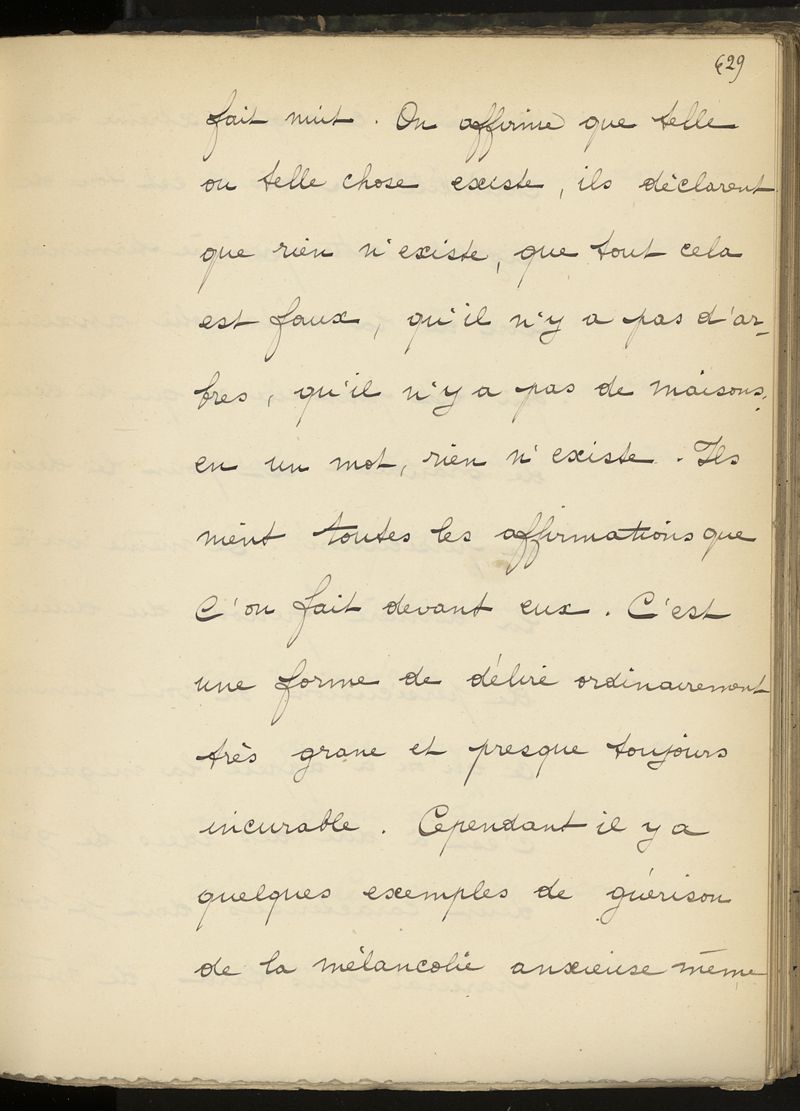 629
fait nuit. On affirme que telle
ou telle chose existe, ils déclarent
que rien n'existe, que tout cela
est faux, qu'il n'y a pas d'ar-
bres, qu'il n'y a pas de maisons,
en un mot, rien n'existe. Ils
nient toutes les affirmations que
l'on fait devant eux. C'est
une forme de délire ordinairement
très grave et presque toujours
incurable. Cependant il y a
quelques exemples de guérison
de la mélancolie anxieuse même